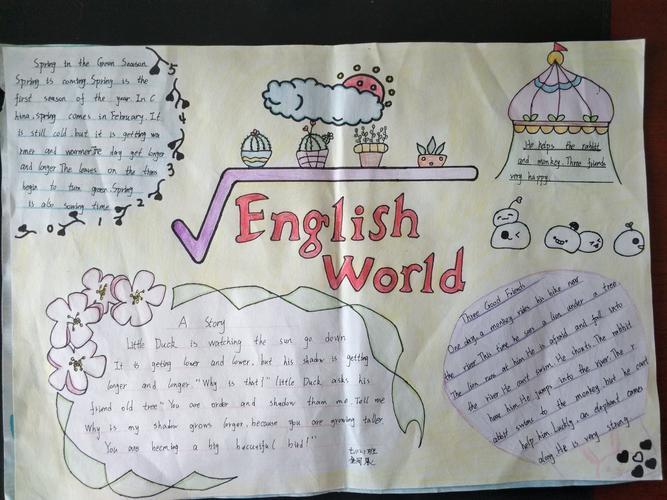 Spring in the Green Season
Spring is coming. Spring is the
first season of the year. In C
hina, spring comes in February. It
is still cold, but it is getting wa
rmer and warmer. The day get longer
and longer. The leaves on the trees
begin to turn green. Spring
is also sowing time.
5
4
3
2
1
0
He helps the rabbit
and monkey. Three friends
very happy.
English
World
A Story
Little Duck is watching the sun go down.
It is getting lower and lower, but his shadow is getting
longer and longer. "Why is that?" Little Duck asks his
friend old tree. "You are order and shadow tham me. Tell me
Why is my shadow grows longer, because you are growing taller.
You are becoming a big beautiful bird!"
Three Good Friends
One day a monkey rides his bike near
the river. This time he sees a lion under a tree
The lion runs at him. He is afraid and falls into
the river. He can't swim. He shouts. The rabbit
hears him. He jumps into the river. The r
abbit swims to the monkey, but he can't
help him. Luckily, an elephant comes
along. He is very strong.